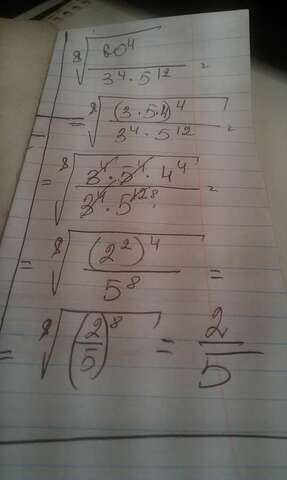 ⁸√(60⁴ / (3⁴ · 5¹²)) =
= ⁸√((3·5·4)⁴ / (3⁴ · 5¹²)) =
= ⁸√(3⁴ · 5⁴ · 4⁴ / (3⁴ · 5¹² ⁸)) =
= ⁸√((2²)⁴ / 5⁸) =
= ⁸√((2/5)⁸) = 2/5